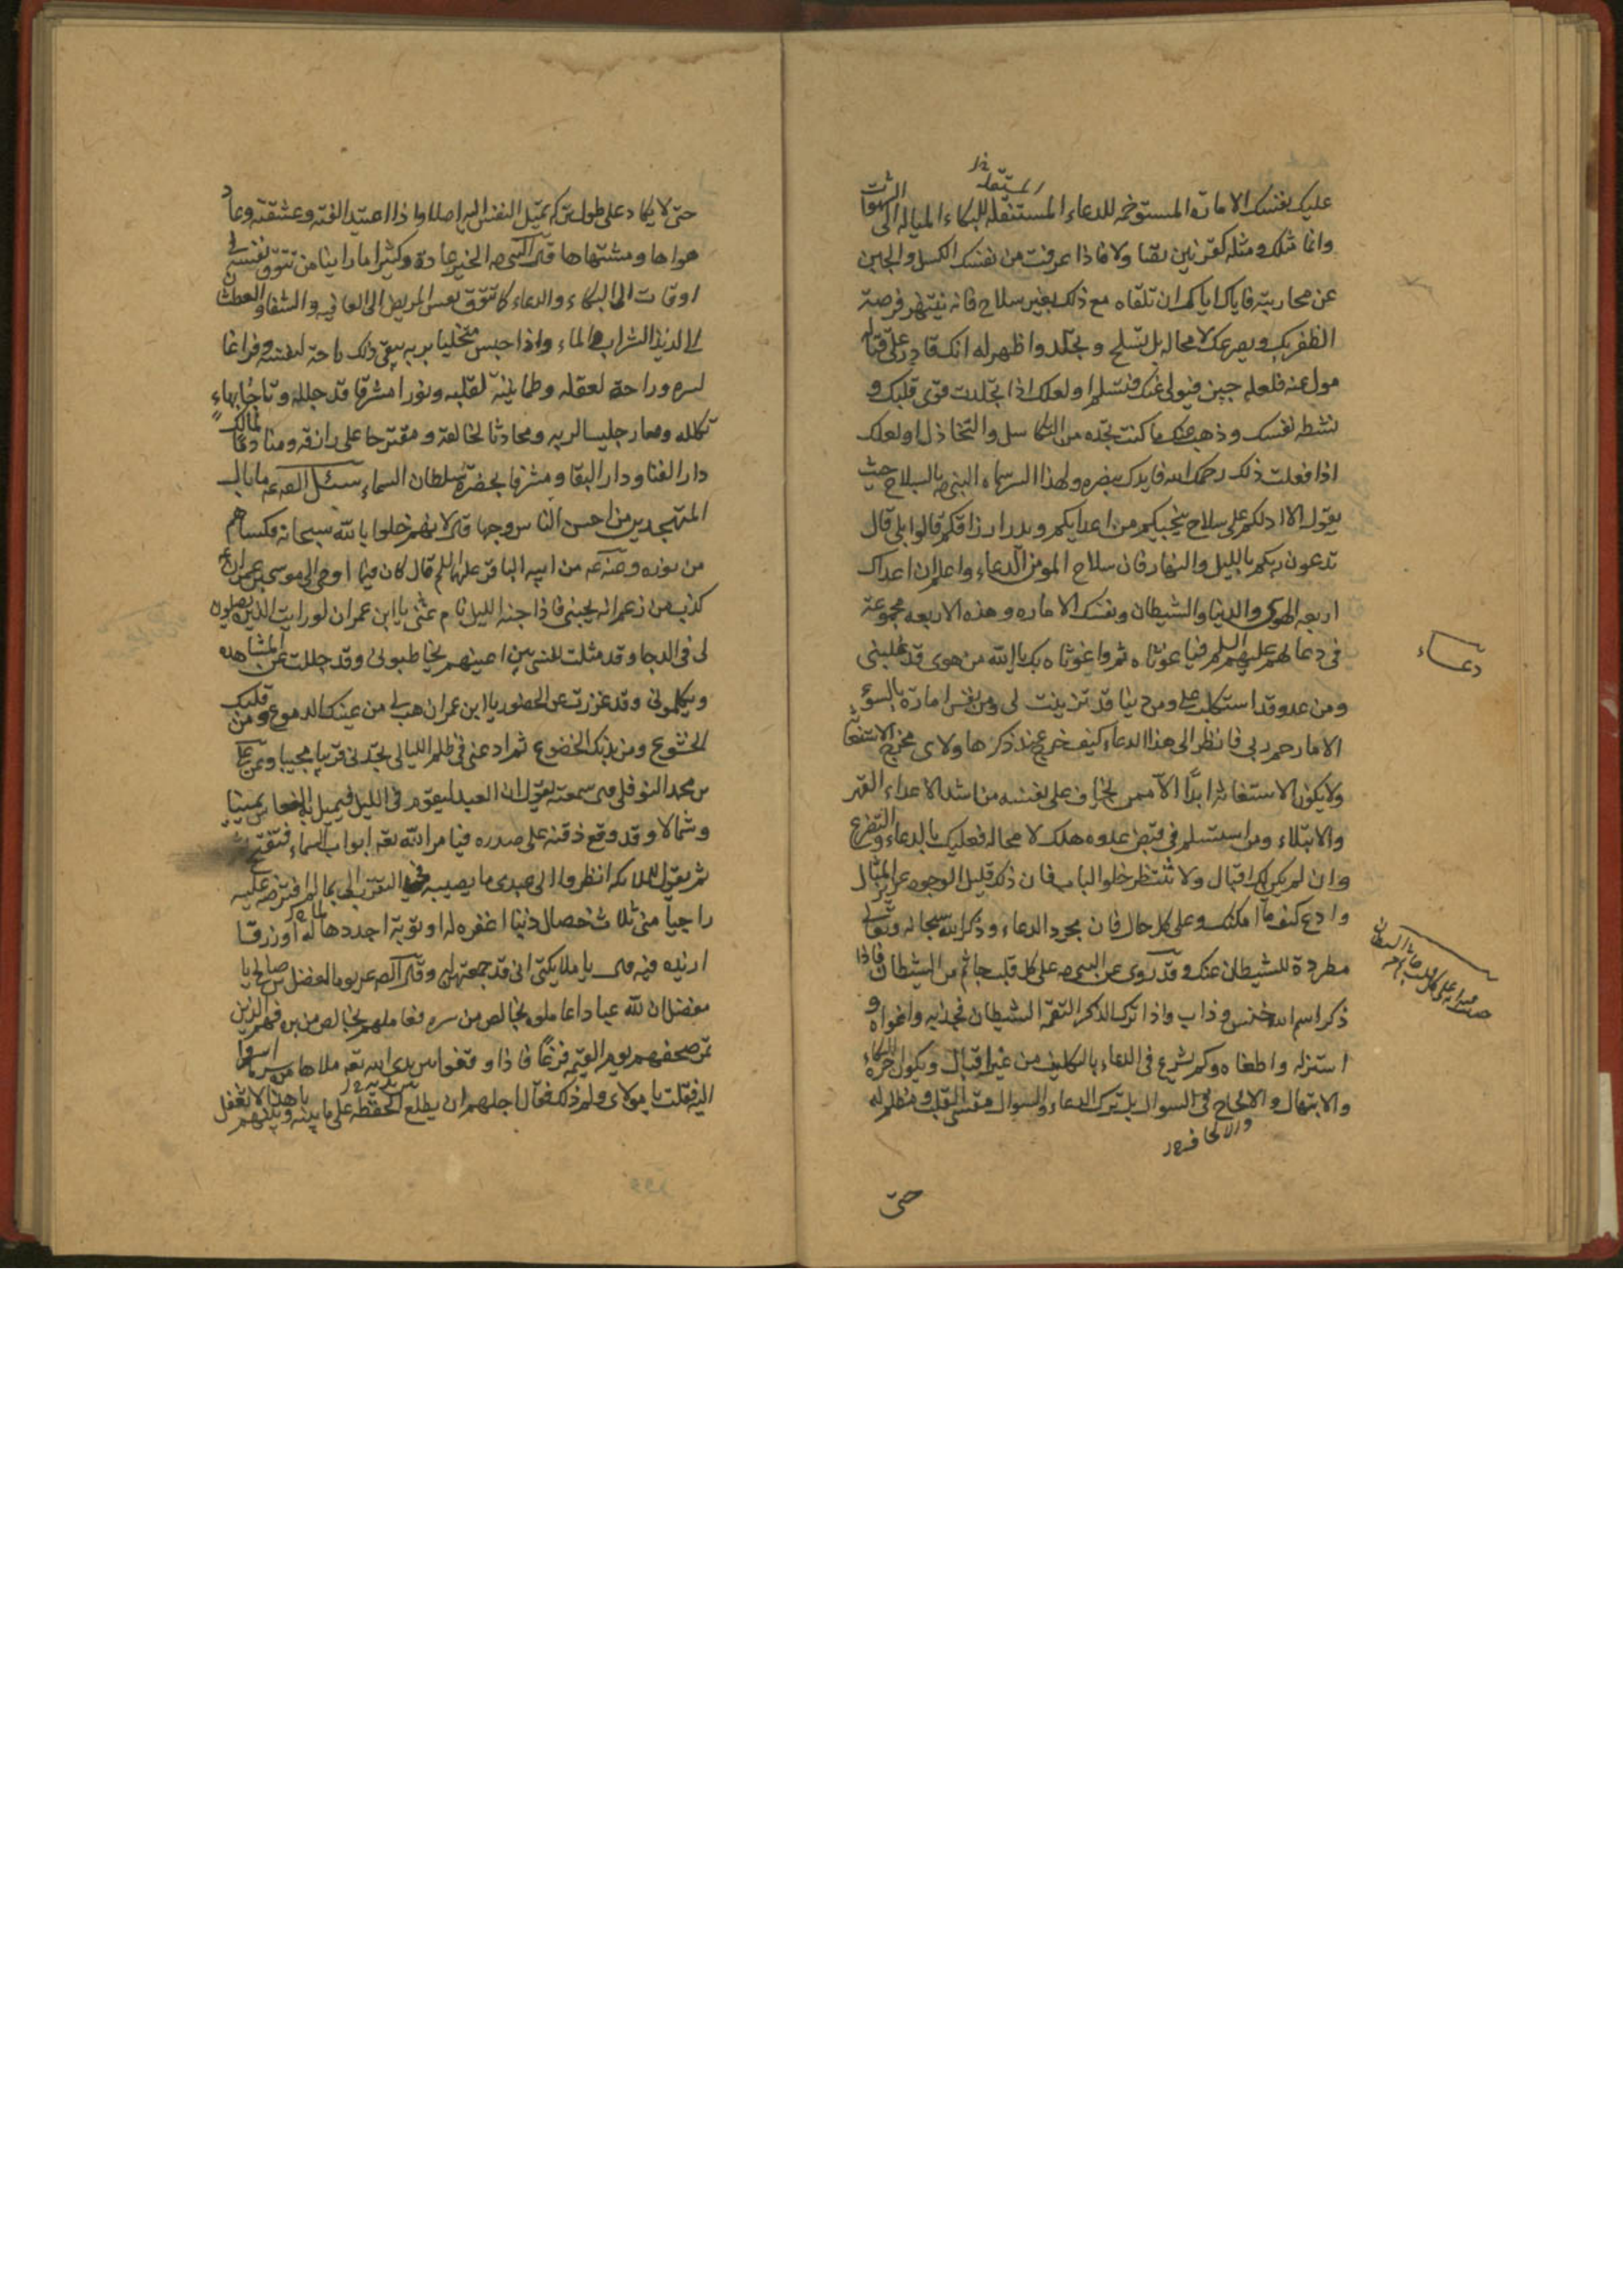 المستقله خ
عليك بنفسك الاماره المستوخمه للدعاء المستثقله للبكاء المياله الى الشهوات
وانما مثلك ومثله كقرنين تقاولا فاذا عرفت من نفسك الكسل والجبن
عن محاربته فاياك اياك ان تلقاه مع ذلك بغير سلاح فانه ينتهز فرصة
الظفر بك ويصرعك لا محاله بل تسلح وتجلد واظهر له انك قادر على قتاله
مول عنه فلعله يجبن فيولى عنك فتسلم او لعلك اذا تجلدت قوى قلبك و
نشطه نفسك وذهب عنك ما كنت تجده من التكاسل والتخاذل او لعلك
اذا فعلت ذلك رحمك الله فايدك بنصره ولهذا السر سماه النبى صه بالسلاح حيث
يقول الا ادلكم على سلاح ينجيكم من اعدايكم ويدر ارزاقكم قالوا بلى قال
تدعون ربكم بالليل والنهار فان سلاح المومن الدعاء واعلم ان اعداك
اربعه الهوى والدنيا والشيطان ونفسك الاماره وهذه الاربعه مجموعة
فى دعا لهم عليهم السلم فيا غوثاه ثم واغوثاه بك يا الله من هوى قد غلبنى
دعاء
ومن عدو قد استكلب على ومن دنيا قد تزينت لى ومن نفس امارة بالسوء
الا ما رحم ربى فانظر الى هذا الدعاء كيف خرج عند ذكرها ولاى مخرج الاستغاثة
ولا يكون الاستغاثه ابدًا الا ممن يخاف على نفسه من اشد الاعداء القهر
والابتلاء ومن استسلم فى قبض عدوه هلك لا محاله فعليك بالدعاء والتضرع
وان لم يكن لك اقبال ولا تنتظر خلو البال فان ذلك قليل الوجود عزيز المثال
وادع كيف ما امكنك وعلى كل حال فان مجرد الدعاء وذكر الله سبحانه وتعالى
مطردة للشيطان عنك وقد روى عن النبى صه على كل قلب جاثم من الشيطان فاذا
ذكر اسم الله خنس وذاب واذا ترك الذكر التقمه الشيطان فجذبه واغواه و
استزله واطغاه وكم شرع فى الدعاء بالتكليف من غير اقبال ويكون اخره البكاء
والابتهال والالحاح فى السوال بل ترك الدعاء والسوال مقسى القلب ومظلم له
والالحاف
حتى
حتى لا يكاد على طول تركه تميل النفس اليه اصلا واذا اعتيد الفته وعشقته وعاد
هواها ومشتهاها قال النبى صه الخير عادة وكثيرا ما راينا من تتوق نفسه فى
اوقات الى البكاء والدعاء كما تتوق نفس المريض الى العافيه والشفا والعطشان
الى لذيذ الشراب والماء واذا جلس متخليا بربه يبقى ذلك راحة لنفسه وفراغا
لسره وراحة لعقله وطمانينة لقلبه ونورا مشرقا قد جلله وتاجا بهاء
تكلله وصار جليسا لربه ومحادثا لخالقه ومقترحا على رازقه ومنادما لمالك
دار الفنا ودار البقا ومشرفا بحضرة سلطان السماء سئل الصه عه ما بال
المتهجدين من احسن الناس وجها قال لانهم خلوا بالله سبحانه فكساهم
من نوره وعنه عه من ابيه الباقر عليهما السلم قال كان فيما اوحى الى موسى بن عمران ع
كذب من زعم انه يحبنى فاذا جنه الليل نام عنى يا ابن عمران لو رايت الذين يصلون
لى فى الدجا وقد مثلت نفسى بين اعينهم يخاطبونى وقد جللت عن المشاهده
ويكلمونى وقد عززت عن الحضور يا ابن عمران هب لى من عينك الدموع ومن قلبك
الخشوع ومن بدنك الخضوع ثم ادعنى فى ظلم الليالى تجدنى قريبا مجيبا وعن على
بن محمد النوفلى قال سمعته يقول ان العبد ليقوم فى الليل فيميل به النعاس يمينا
وشمالا وقد وقع ذقنه على صدره فيامر الله تعه ابواب السماء فتفتح
ثم يقول للملائكه انظروا الى عبدى ما يصيبه فى التقرب الى بما لم افترضه عليه
راجيا منى ثلاث خصال ذنبا اغفره له او توبة اجددها له او رزقا
ازيده فيه قال يا ملايكتى انى قد جمعتهن له وقال الصه عه يوما للمفضل بن صالح يا
مفضل ان لله عبادا عاملوه بخالص من سره فعاملهم بخالص من بره فهم الذين
تمر صحفهم يوم القيمه فرغا فاذا وقفوا بين يدى الله تعه ملاها من سر ما اسروا
اليه فقلت يا مولاى ولم ذلك فقال اجلهم ان يطلع الحفظة على ما بينه وبينهم يا هذا لا تغفل